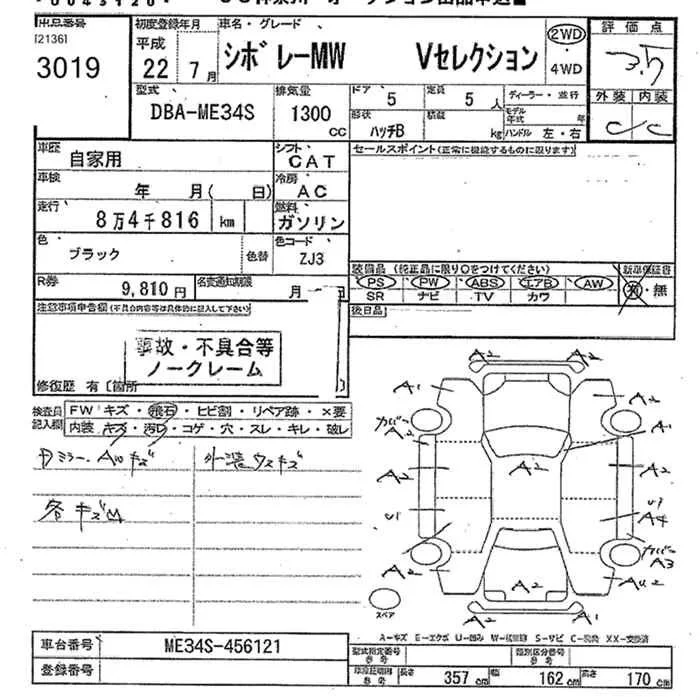 [2136]
3019
初度登録年月
平成
22 7月
車名・グレード
シボレーMW Vセレクション
2WD
4WD
評価点
3.5
外装 内装
C/C
型式
DBA-ME34S
排気量
1300
CC
ドア
5
定員
5 人
ディーラー・並行
形状
ハッチB
積載
kg
モデル年式 年
ハンドル 左・右
車歴
自家用
シフト
CAT
セールスポイント(正常に機能するものに限ります)
車検
年 月( 日)
冷房
AC
走行
8万4千816 km
燃料
ガソリン
色
ブラック
色替
色コード
ZJ3
装備品 (純正品に限り○をつけてください)
新車保証書
PS PW ABS エアB AW 有・無
SR ナビ TV カワ
R券
9,810円
名変通知期限
月
後日品
注意事項申告欄(不具合内容等は具体的に記入して下さい)
事故・不具合等
ノークレーム
修復歴 有〔箇所
検査員記入欄
FW キズ・飛石・ヒビ割・リペア跡・×要
内装 キズ・汚れ・コゲ・穴・スレ・キレ・破レ
外装ウスキズ
A2
A2
A1
A2
カバー
A2
A1
A2
A2
A2
A4
カバー
A3
A2
A2
A2
A2
スペア
A-キズ E-エクボ U-凹み W-板金波 S-サビ C-腐蝕 XX-交換済
車台番号
ME34S-456121
型式指定番号
参考
類別区分番号
参考
登録番号
車検証記載
参考
長さ 357 cm
幅 162 cm
高さ 170 cm